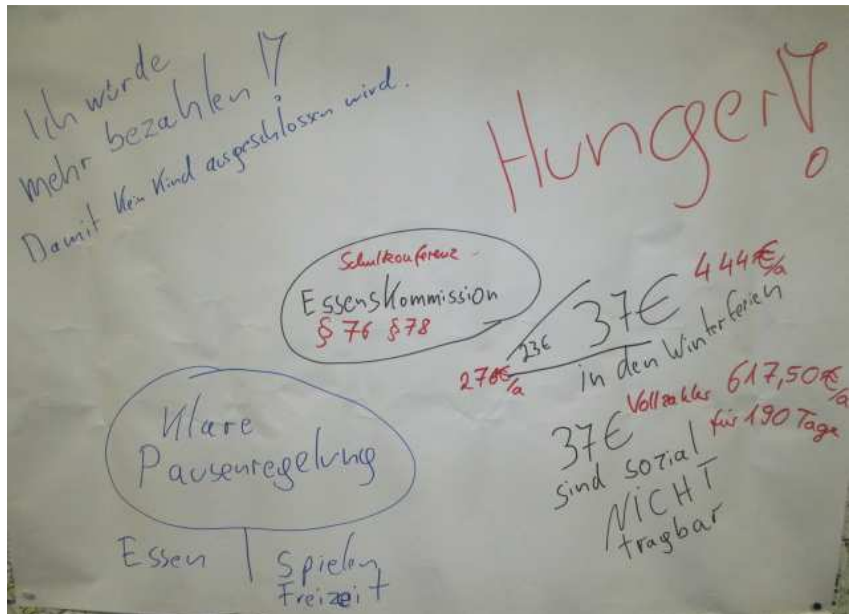 Ich würde
mehr bezahlen!
Damit kein Kind ausgeschlossen wird.
Hunger!
Schulkonferenz -
Essenskommission
§ 76 § 78
444€/a
37€
23€
276€/a
in den Winterferien
Vollzahler 617,50€/a
für 190 Tage
37€
sind sozial
NICHT
tragbar
Klare
Pausenregelung
Essen
Spielen
Freizeit